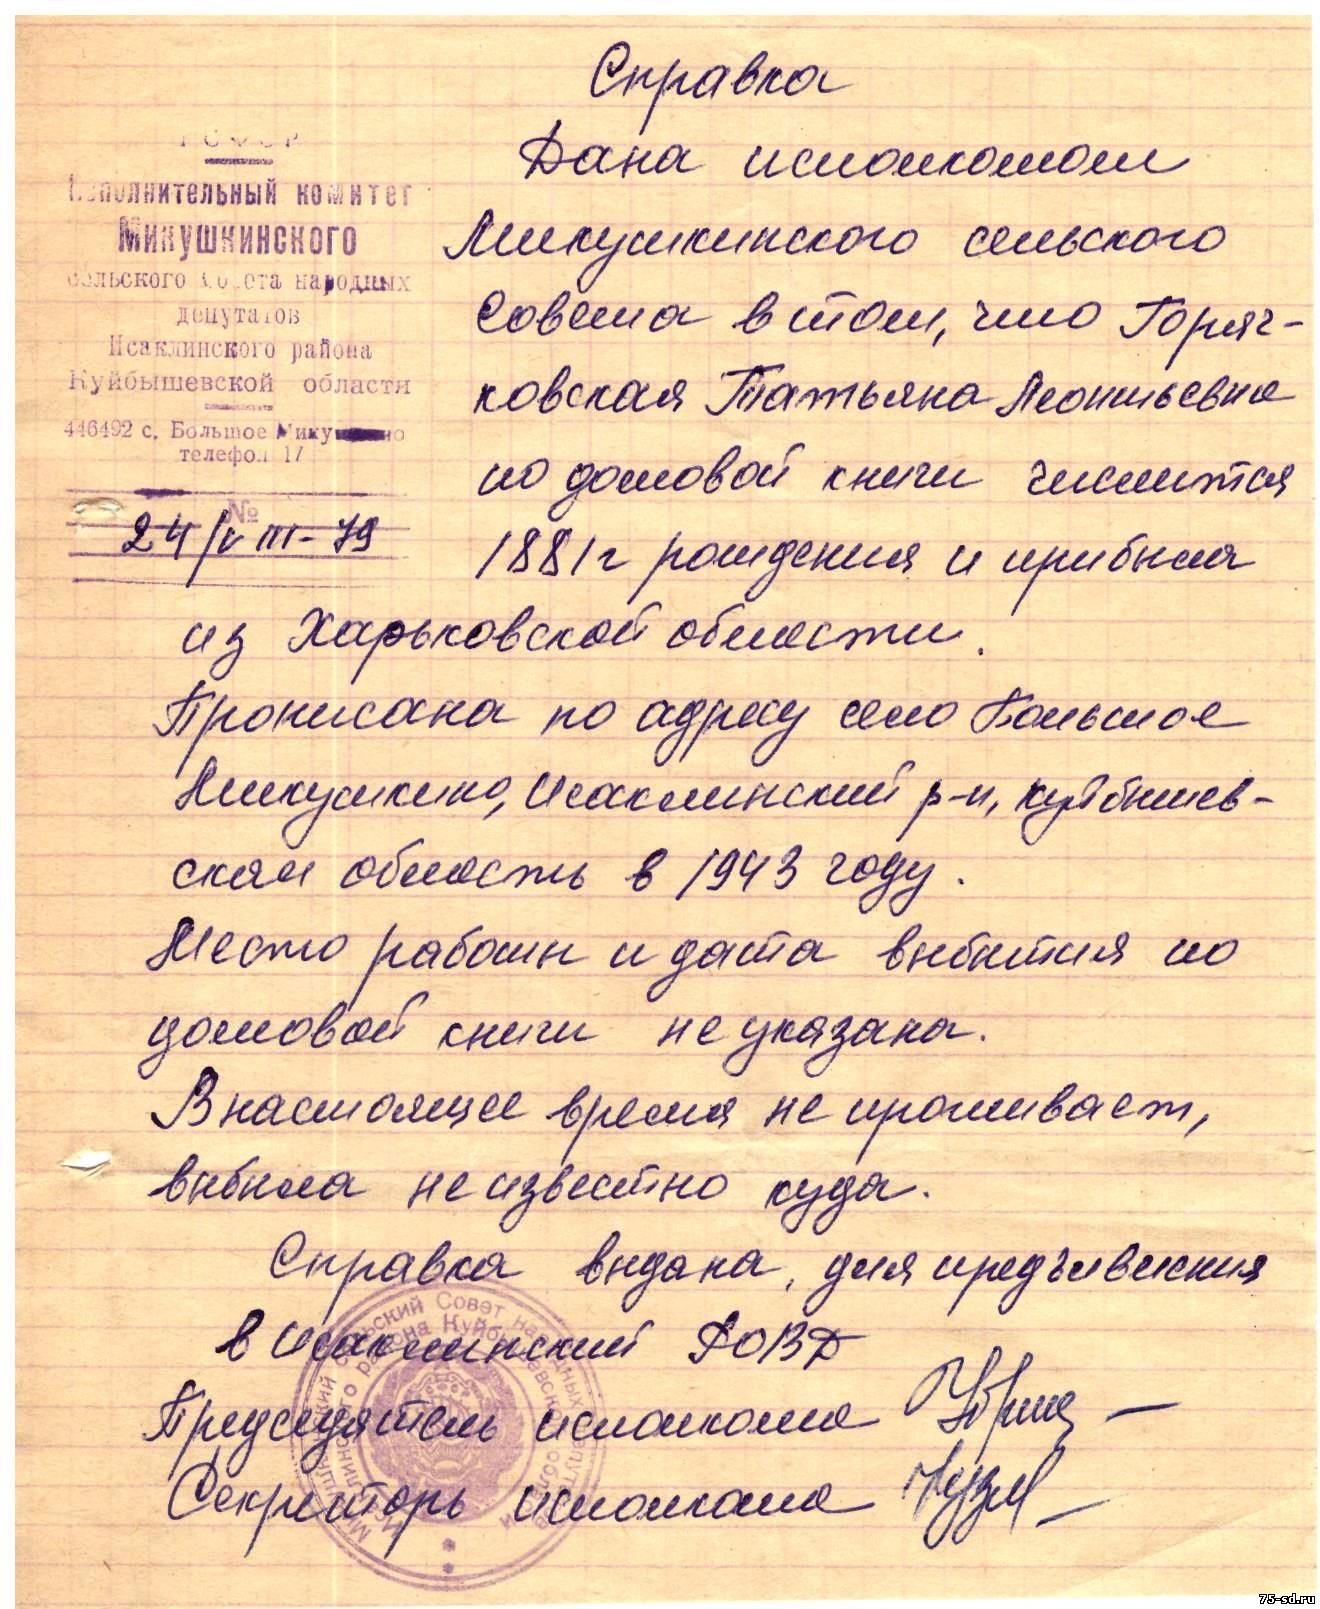 Справка
РСФСР
Исполнительный комитет
Микушкинского
сельского Совета народных
депутатов
Исаклинского района
Куйбышевской области
446492 с. Большое Микушкино
телефон 17
№
24/V III-79
Дана исполкомом
Микушкинского сельского
Совета в том, что Горяч-
ковская Татьяна Леонтьевна
по домовой книги числится
1881г рождения и прибыла
из Харьковской области.
Прописана по адресу село Большое
Микушкино, Исаклинский р-н, Куйбышев-
ская область в 1943 году.
Место работы и дата выбытия по
домовой книги не указана.
В настоящее время не проживает,
выбыла неизвестно куда.
Справка выдана, для предъявления
в Исаклинский РОВД
Председатель исполкома
Секретарь исполкома
75-sd.ru